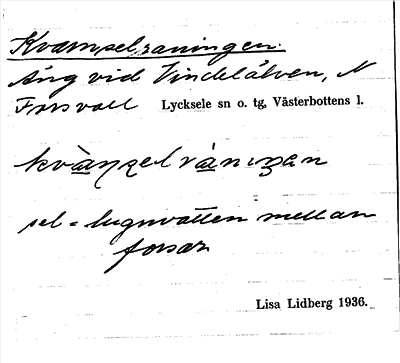 Kvamselraningen.
Äng vid Vindelälven, N
Forsvall Lycksele sn o. tg, Västerbottens l.
sel = lugnvatten mellan
forsar
Lisa Lidberg 1936.